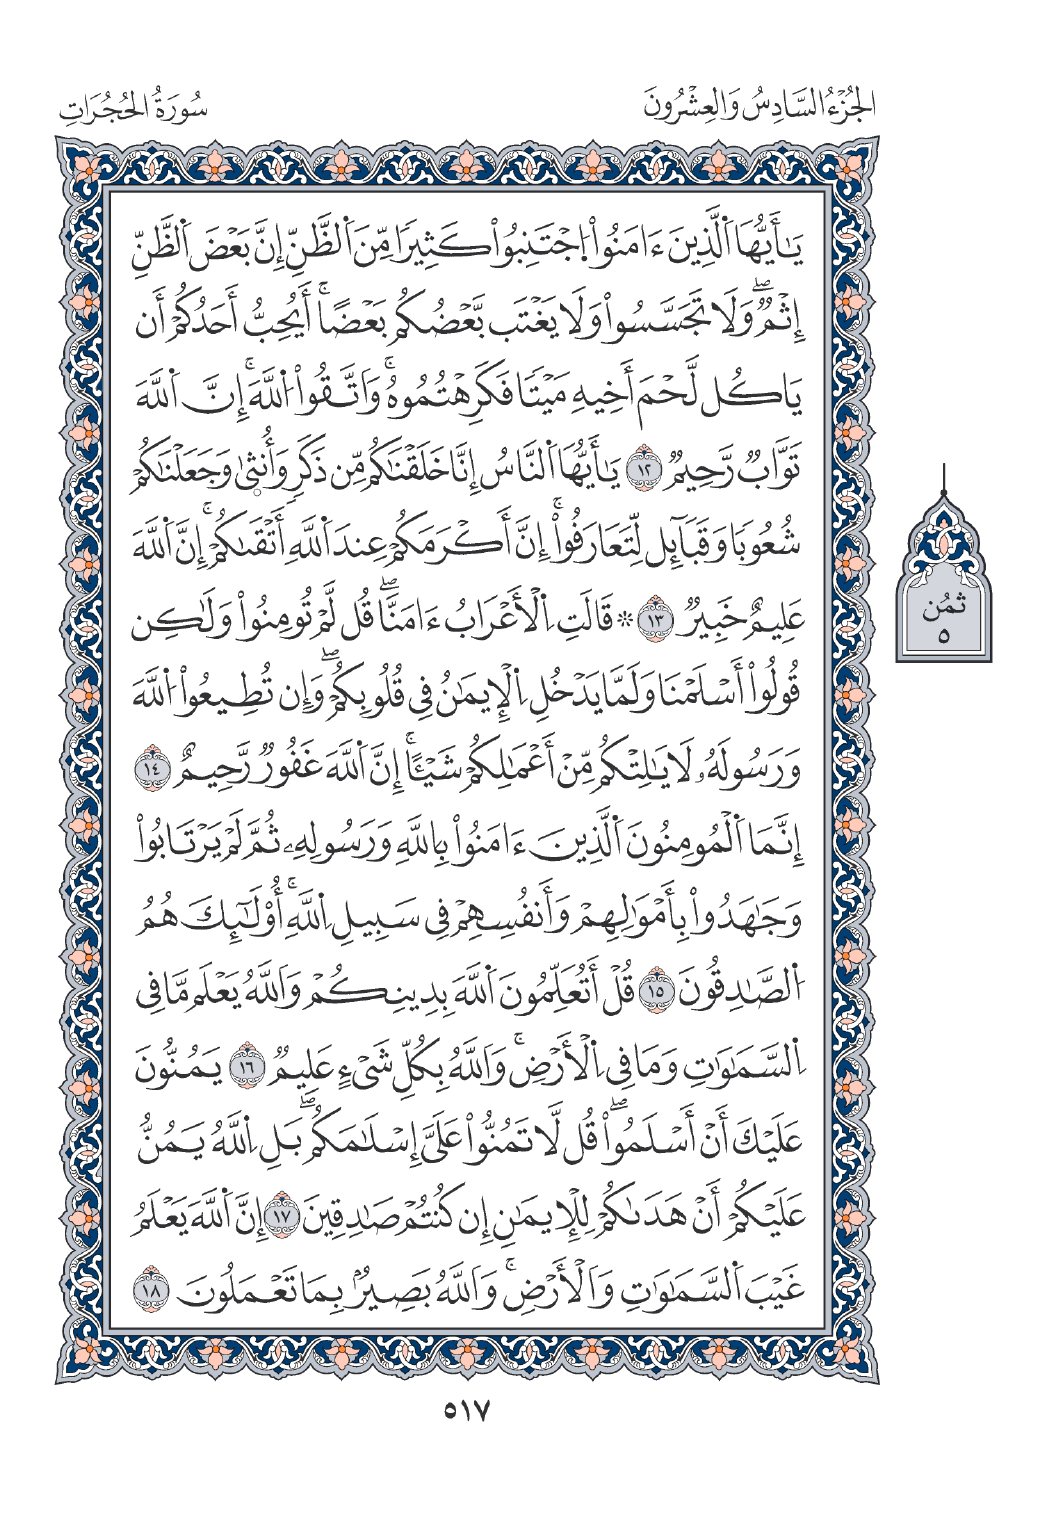 الجُزْءُ السَّادِسُ وَالعِشْرُونَ
سُورَةُ الحُجُرَاتِ
يَٰٓأَيُّهَا اَ۬لذِينَ ءَامَنُواْ اُ۪جْتَنِبُواْ كَثِيراٗ مِّنَ اَ۬لظَّنِّ إِنَّ بَعْضَ اَ۬لظَّنِّ
إِثْمٞۖ وَلَا تَجَسَّسُواْ وَلَا يَغْتَب بَّعْضُكُم بَعْضاًۚ أَيُحِبُّ أَحَدُكُمُۥٓ أَن
يَاكُل لَّحْمَ أَخِيهِ مَيْتاٗ فَكَرِهْتُمُوهُۚ وَاتَّقُواْ اُ۬للَّهَۚ إِنَّ اَ۬للَّهَ
تَوَّابٞ رَّحِيمٞ ١٢ يَٰٓأَيُّهَا اَ۬لنَّاسُ إِنَّا خَلَقْنَٰكُم مِّن ذَكَرٖ وَأُنث۪يٰ وَجَعَلْنَٰكُمْ
شُعُوباٗ وَقَبَآئِل لِّتَعَارَفُوٓاْۚ إِنَّ أَكْرَمَكُمْ عِندَ اَ۬للَّهِ أَتْقَىٰكُمُۥٓۚ إِنَّ اَ۬للَّهَ
عَلِيمٌ خَبِيرٞ ١٣ ۞ قَالَتِ اِ۬لْأَعْرَابُ ءَامَنَّاۖ قُل لَّمْ تُومِنُواْ وَلَٰكِن
قُولُوٓاْ أَسْلَمْنَا وَلَمَّا يَدْخُلِ اِ۬لْإِيمَٰنُ فِي قُلُوبِكُمْۖ وَإِن تُطِيعُواْ اُ۬للَّهَ
وَرَسُولَهُۥ لَا يَٰلِتْكُم مِّنْ أَعْمَٰلِكُمْ شَيْـٔاًۚ إِنَّ اَ۬للَّهَ غَفُورٞ رَّحِيمٌ ١٤
إِنَّمَا اَ۬لْمُومِنُونَ اَ۬لذِينَ ءَامَنُواْ بِاللَّهِ وَرَسُولِهِۦ ثُمَّ لَمْ يَرْتَابُواْ
وَجَٰهَدُواْ بِأَمْوَٰلِهِمْ وَأَنفُسِهِمْ فِي سَبِيلِ اِ۬للَّهِۚ أُوْلَٰٓئِكَ هُمُ
اُ۬لصَّٰدِقُونَ ١٥ قُلْ أَتُعَلِّمُونَ اَ۬للَّهَ بِدِينِكُمْ وَاللَّهُ يَعْلَم مَّا فِي
اِ۬لسَّمَٰوَٰتِ وَمَا فِي اِ۬لْأَرْضِۚ وَاللَّهُ بِكُلِّ شَيْءٍ عَلِيمٞ ١٦ يَمُنُّونَ
عَلَيْكَ أَنْ أَسْلَمُواْۖ قُل لَّا تَمُنُّواْ عَلَيَّ إِسْلَٰمَكُمۖ بَلِ اِ۬للَّهُ يَمُنُّ
عَلَيْكُمْ أَنْ هَدَىٰكُمْ لِلْإِيمَٰنِ إِن كُنتُمْ صَٰدِقِينَ ١٧ إِنَّ اَ۬للَّهَ يَعْلَمُ
غَيْبَ اَ۬لسَّمَٰوَٰتِ وَالْأَرْضِۚ وَاللَّهُ بَصِيرُۢ بِمَا تَعْمَلُونَ ١٨
ثُمُن
٥
٥١٧